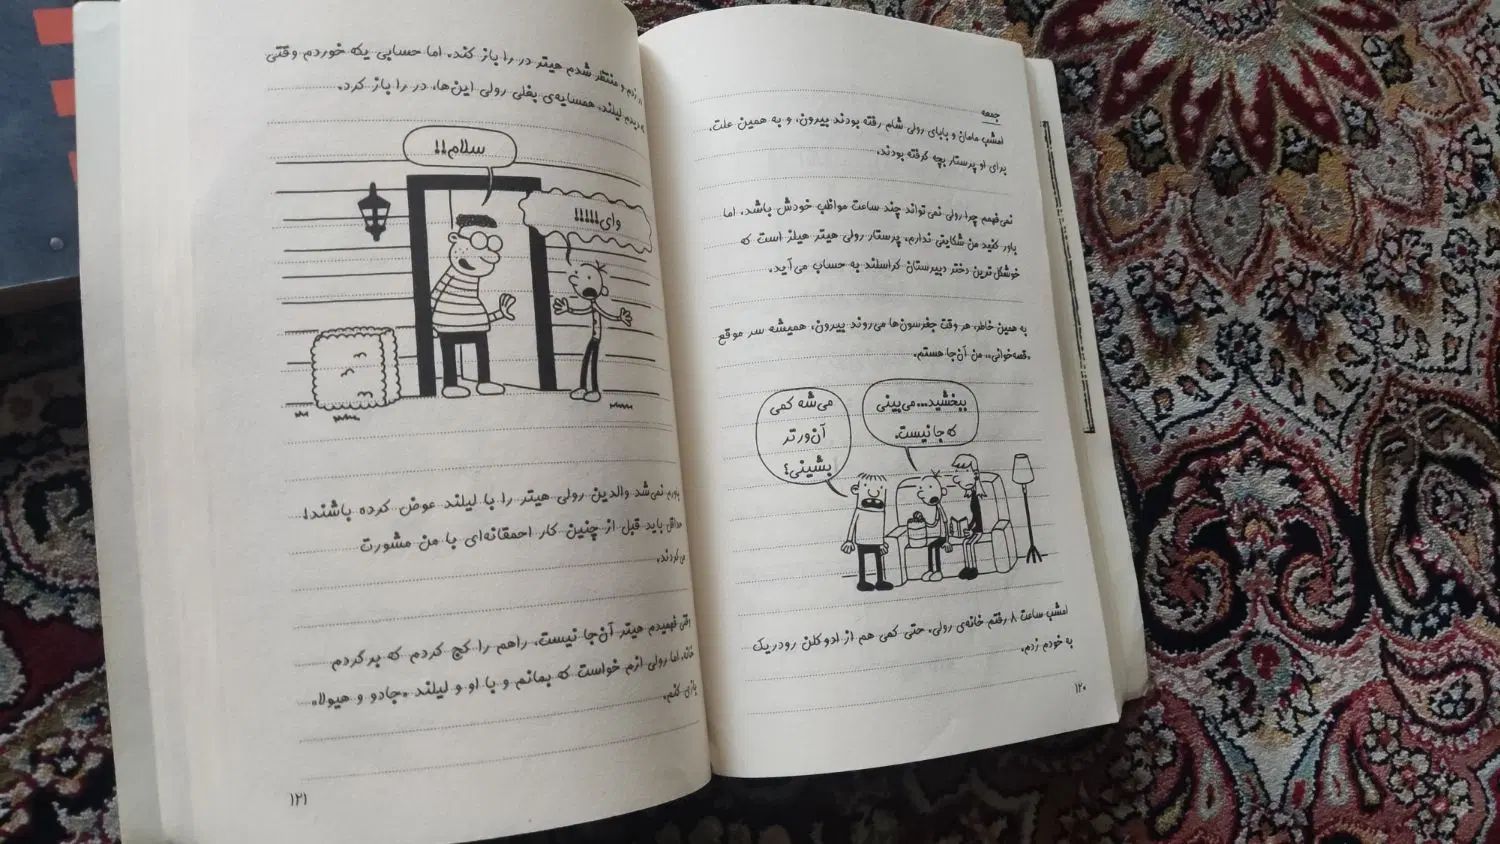 جمعه
امشب مامان و بابای رولی شام رفته بودند بیرون، و به همین علت،
برای او پرستار بچه گرفته بودند.
نمی‌فهمم چرا رولی نمی‌تواند چند ساعت مواظب خودش باشد، اما
باور کنید من شکایتی ندارم. پرستار رولی هیتر هیلز است که
خوشگل‌ترین دختر دبیرستان کراسلند به حساب می‌آید.
به همین خاطر، هر وقت جفرسون‌ها می‌روند بیرون، همیشه سر موقع
«قصه‌خوانی» من آن‌جا هستم.
ببخشید... می‌بینی
که جا نیست.
می‌شه کمی
آن‌ورتر
بشینی؟
امشب ساعت ۸ رفتم خانه‌ی رولی. حتی کمی هم از ادوکلن رودریک
به خودم زدم.
۱۲۰
در زدم و منتظر شدم هیتر در را باز کند. اما حسابی یکه خوردم وقتی
دیدم لیلند، همسایه‌ی بغلی رولی این‌ها، در را باز کرد.
سلام!!
وای!!!!!
باورم نمی‌شد والدین رولی هیتر را با لیلند عوض کرده باشند!
حداقل باید قبل از چنین کار احمقانه‌ای با من مشورت
می‌کردند.
وقتی فهمیدم هیتر آن‌جا نیست، راهم را کج کردم که برگردم
خانه. اما رولی ازم خواست که بمانم و با او و لیلند «جادو و هیولا»
بازی کنم.
۱۲۱